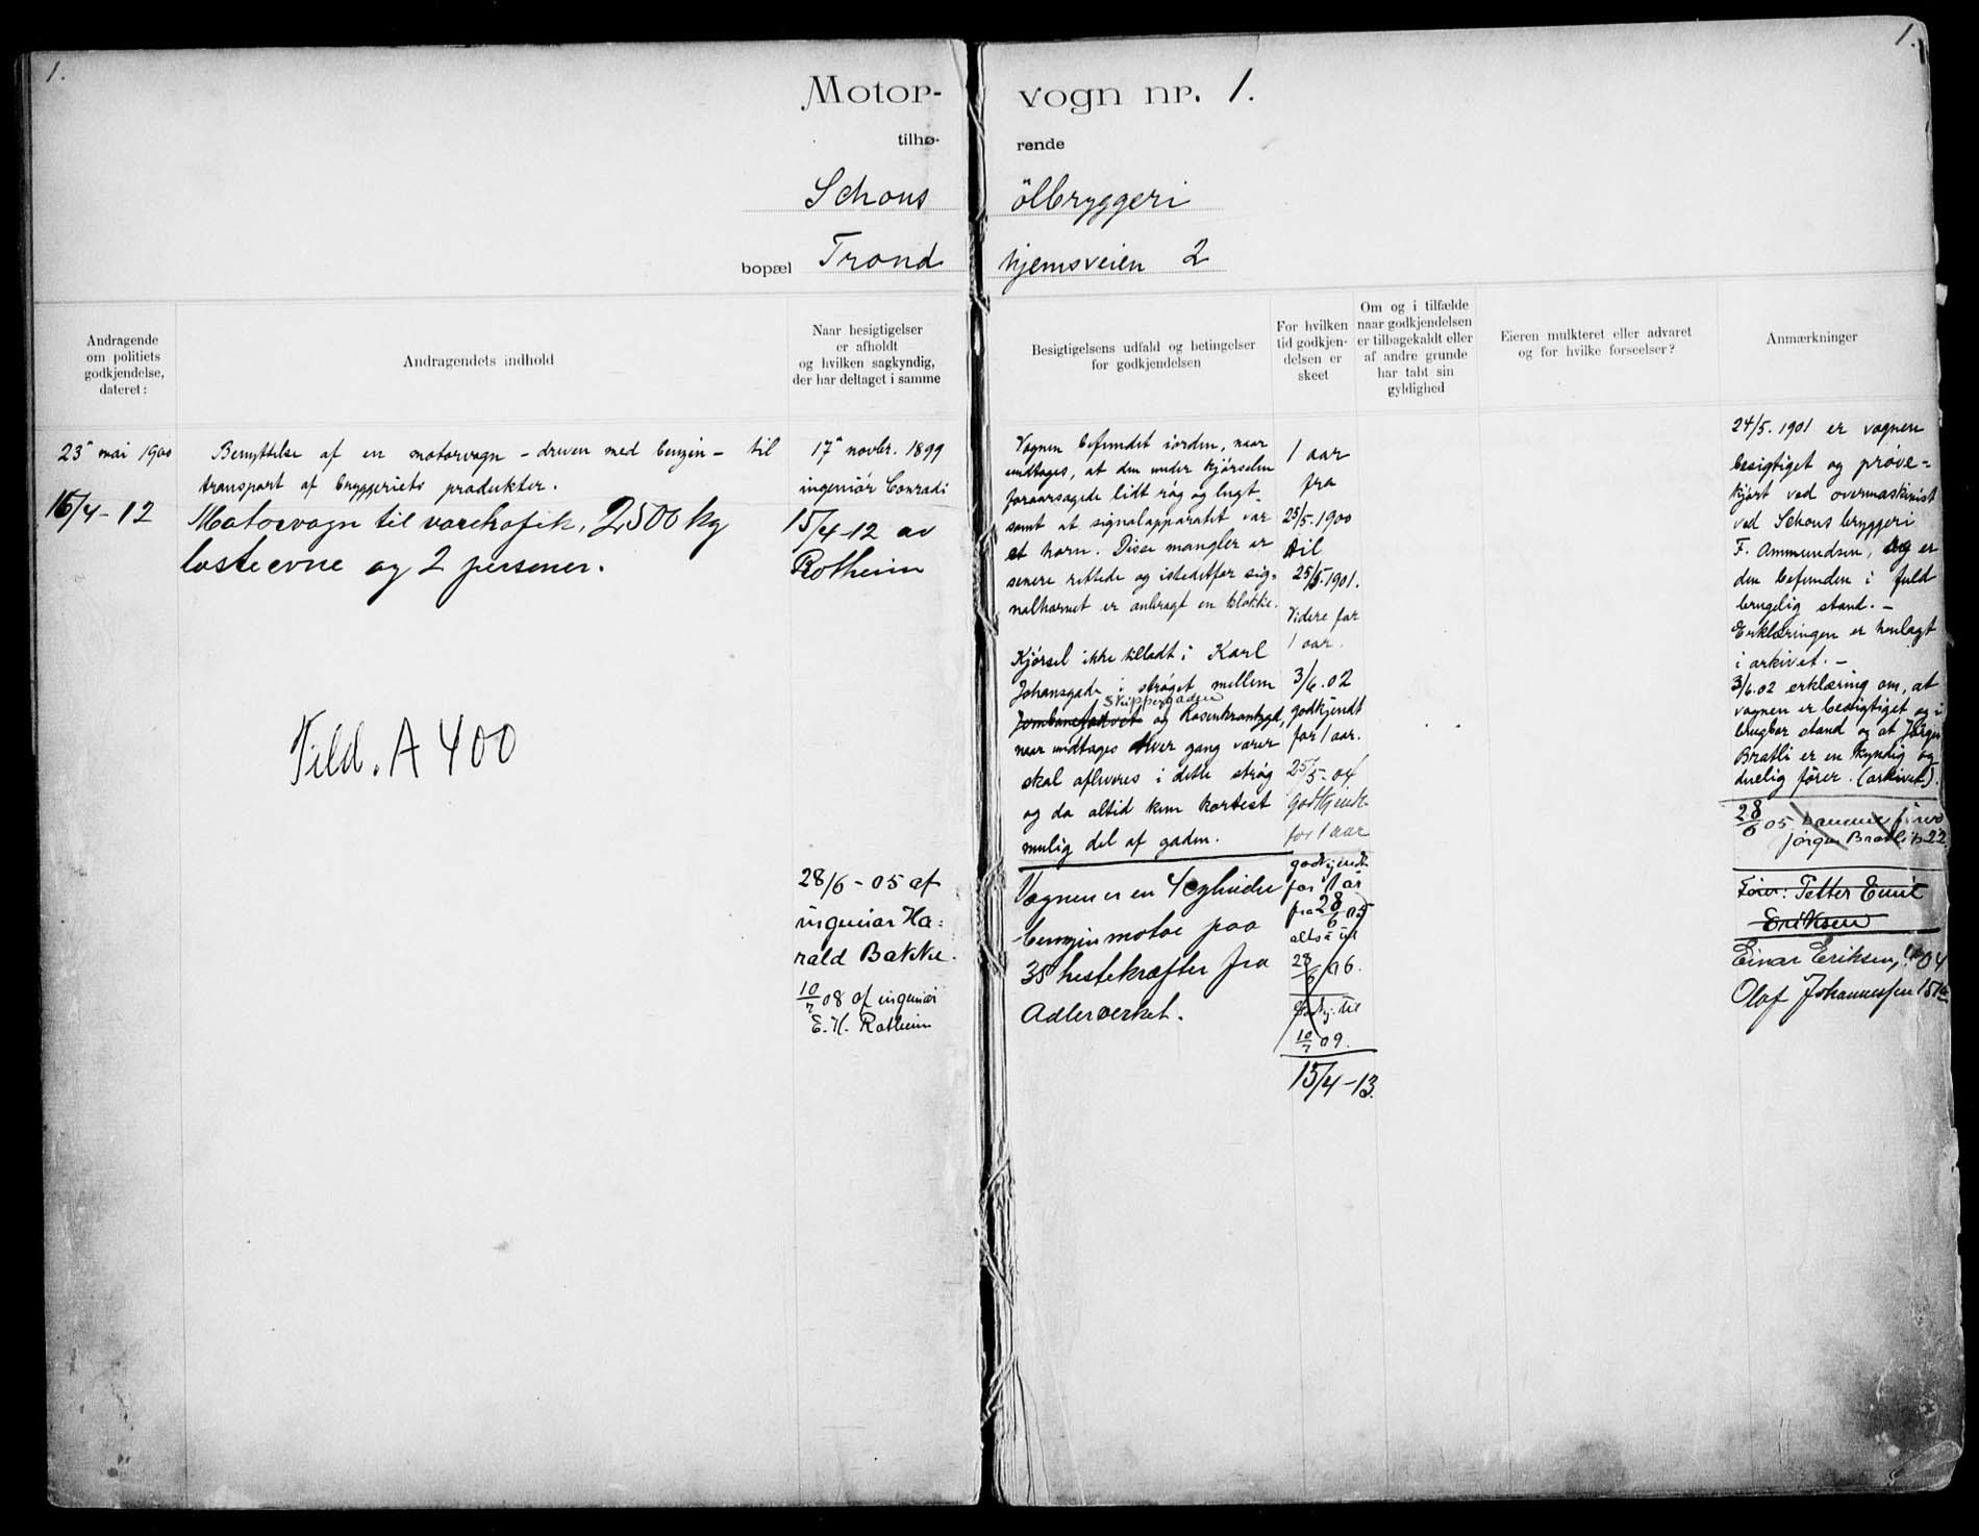 1.
1.
Motor- vogn nr. 1.
tilhø- rende
Schous ölbryggeri
bopæl Trond hjemsveien 2
Andragende
om politiets
godkjendelse,
dateret:
Andragendets indhold
Naar besigtigelser
er afholdt
og hvilken sagkyndig,
der har deltaget i samme
Besigtigelsens udfald og betingelser
for godkjendelsen
For hvilken
tid godkjen-
delsen er
skeet
Om og i tilfælde
naar godkjendelsen
er tilbagekaldt eller
af andre grunde
har tabt sin
gyldighed
Eieren mulkteret eller advaret
og for hvilke forseelser?
Anmærkninger
23' mai 1900
16/4-12
Benyttelse af en motorvogn - dreven med benzin - til
transport af bryggeriets produkter.
Motorvogn til varetrafik, 2500 kg
lasteevne og 2 personer.
Tild. A 400
17' novbr. 1899
ingeniör Conradi
15/4-12 av
Rotheim
28/6-05 af
ingeniør Ha=
rald Bakke.
10/7 08 af ingeniør
E. H. Rotheim
Vognen befundet iorden, naar
undtages, at den under kjörselen
foraarsagede lidt røg og lugt,
samt at signalapparatet var
et horn. Disse mangler er
senere rettede og istedetfor sig=
nalhornet er anbragt en klokke.
Kjörsel ikke tilladt i Karl
Johansgade i ströget mellem
Skippergaden
Jernbanetorvet og Rosenkrantzgd,
naar undtages hver gang varer
skal afleveres i dette strög
og da altid kun kortest
mulig del af gaden.
Vognen er en 4 cylinder
benzinmotor paa
35 hestekræfter fra
Adlerverket.
1 aar
fra
25/5.1900
til
25/5.1901.
Videre for
1 aar.
3/6.02
godkjendt
for 1 aar.
25/5-04
Godkjendt
for 1 aar
godkjendt
for 1 år
fra 28/6 05
altså til
28/6 06.
godkj. til
10/7 09.
15/4-13.
24/5.1901 er vognen
besigtiget og pröve=
kjört ved overmaskinist
ved Schous bryggeri
F. Ammundsen, og er
den befunden i fuld
brugelig stand. -
Erklæringen er henlagt
i arkivet. -
3/6.02 erklæring om, at
vognen er besigtiget og i
brugbar stand og at Jörgen
Bratli er en kyndig og
duelig förer. (arkivet).
28/6 05
Jørgen Bratli
Fører: Petter Emil
Eriksen
Einar Eriksen, 04
Olof Johannessen